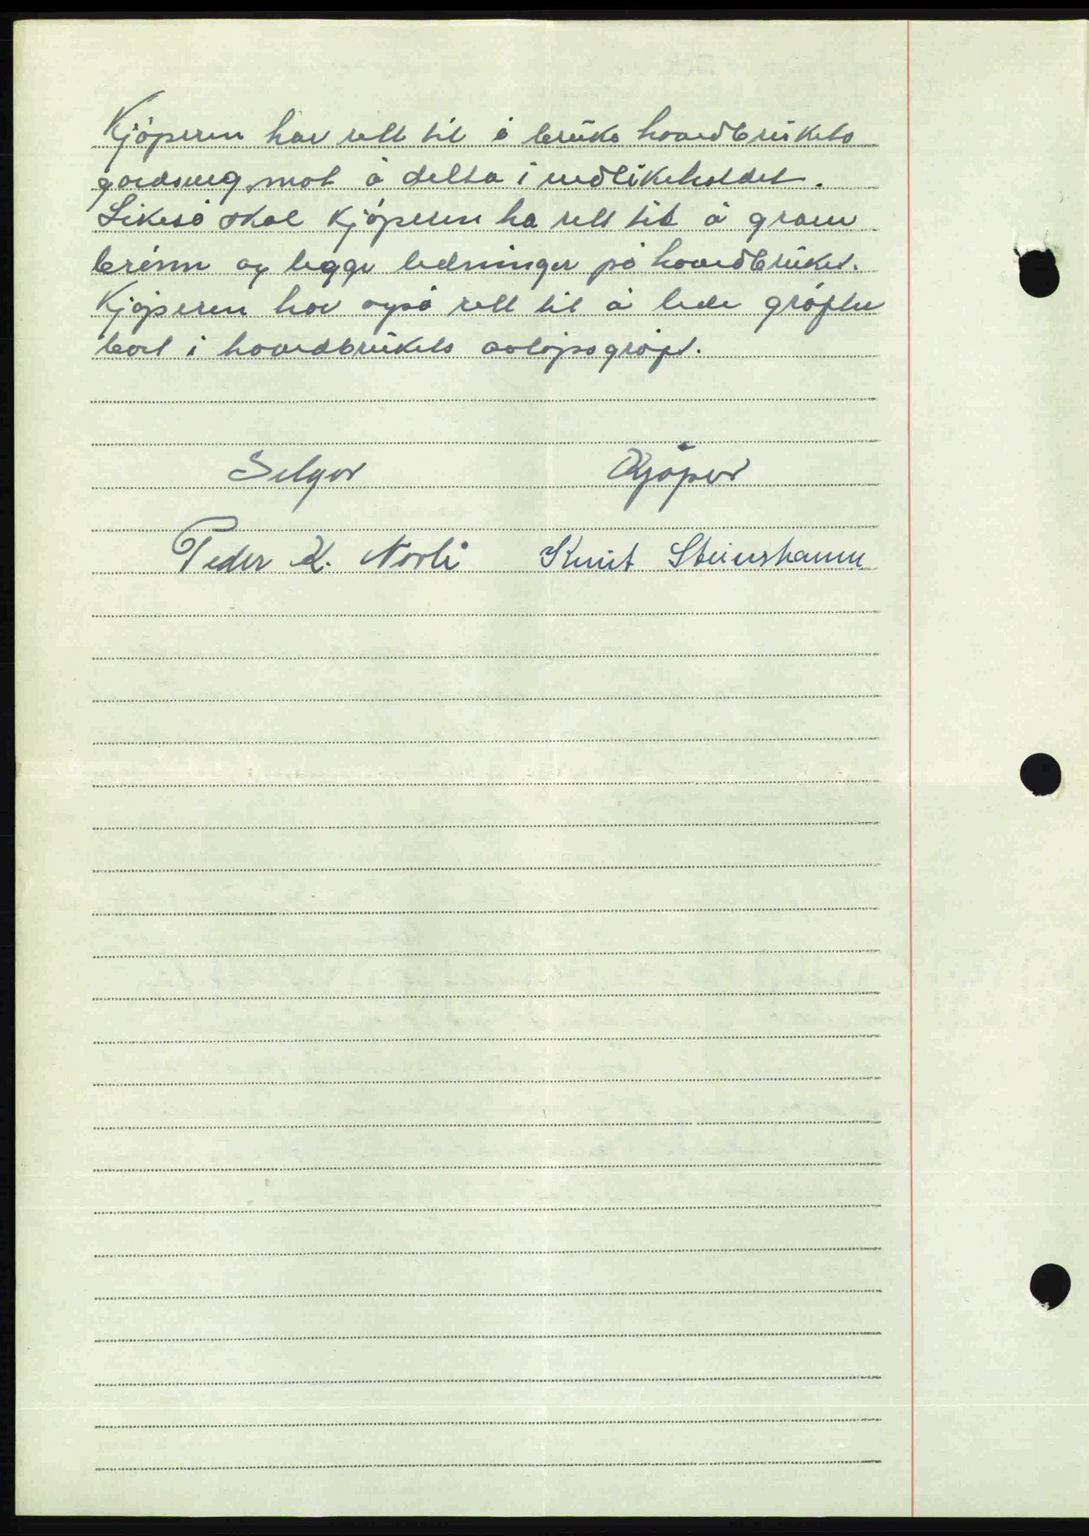 Kjøperen har rett til å bruke hovedbrukets
gårdsveg mot å delta i vedlikeholdet.
Likeså skal kjøperen ha rett til å grave
brønn og legge ledninger på hovedbruket.
Kjøperen har også rett til å lede grøften
bort i hovedbrukets avløpsgrøft.
Selger Kjøper
Peder K. Norli Knut Steinshamn